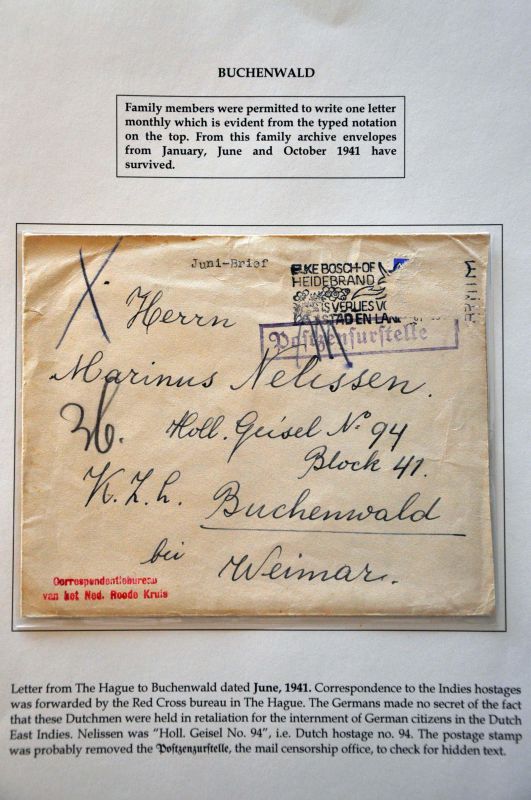 BUCHENWALD
Family members were permitted to write one letter
monthly which is evident from the typed notation
on the top. From this family archive envelopes
from January, June and October 1941 have
survived.
Juni-Brief
ELKE BOSCH-OF
HEIDEBRAND
IS VERLIES VO
STAD EN LAN
Herrn
Postzensurstelle
Marinus Nelissen.
36.
Holl. Geisel No 94
Block 41.
K. Z. h. Buchenwald
bei
Weimar.
Correspondentiebureau
van het Ned. Roode Kruis
Letter from The Hague to Buchenwald dated June, 1941. Correspondence to the Indies hostages
was forwarded by the Red Cross bureau in The Hague. The Germans made no secret of the fact
that these Dutchmen were held in retaliation for the internment of German citizens in the Dutch
East Indies. Nelissen was "Holl. Geisel No. 94", i.e. Dutch hostage no. 94. The postage stamp
was probably removed the Postzenzurstelle, the mail censorship office, to check for hidden text.